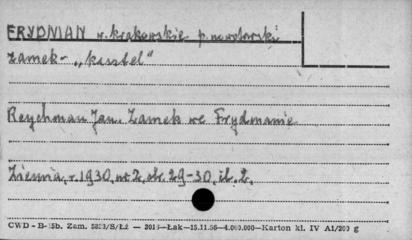 FRYDMAN w. krakowskie p. nowotarski
zamek - „kasztel"
Reychman Jan. Zamek we Frydmanie
Ziemia, r. 1930, nr 2, str. 29-30, il. 2.
CWD - B-15b. Zam. 5823/S/Łż — 2016—Łak—15.11.56—4.000.000—Karton kl. IV A1/200 g